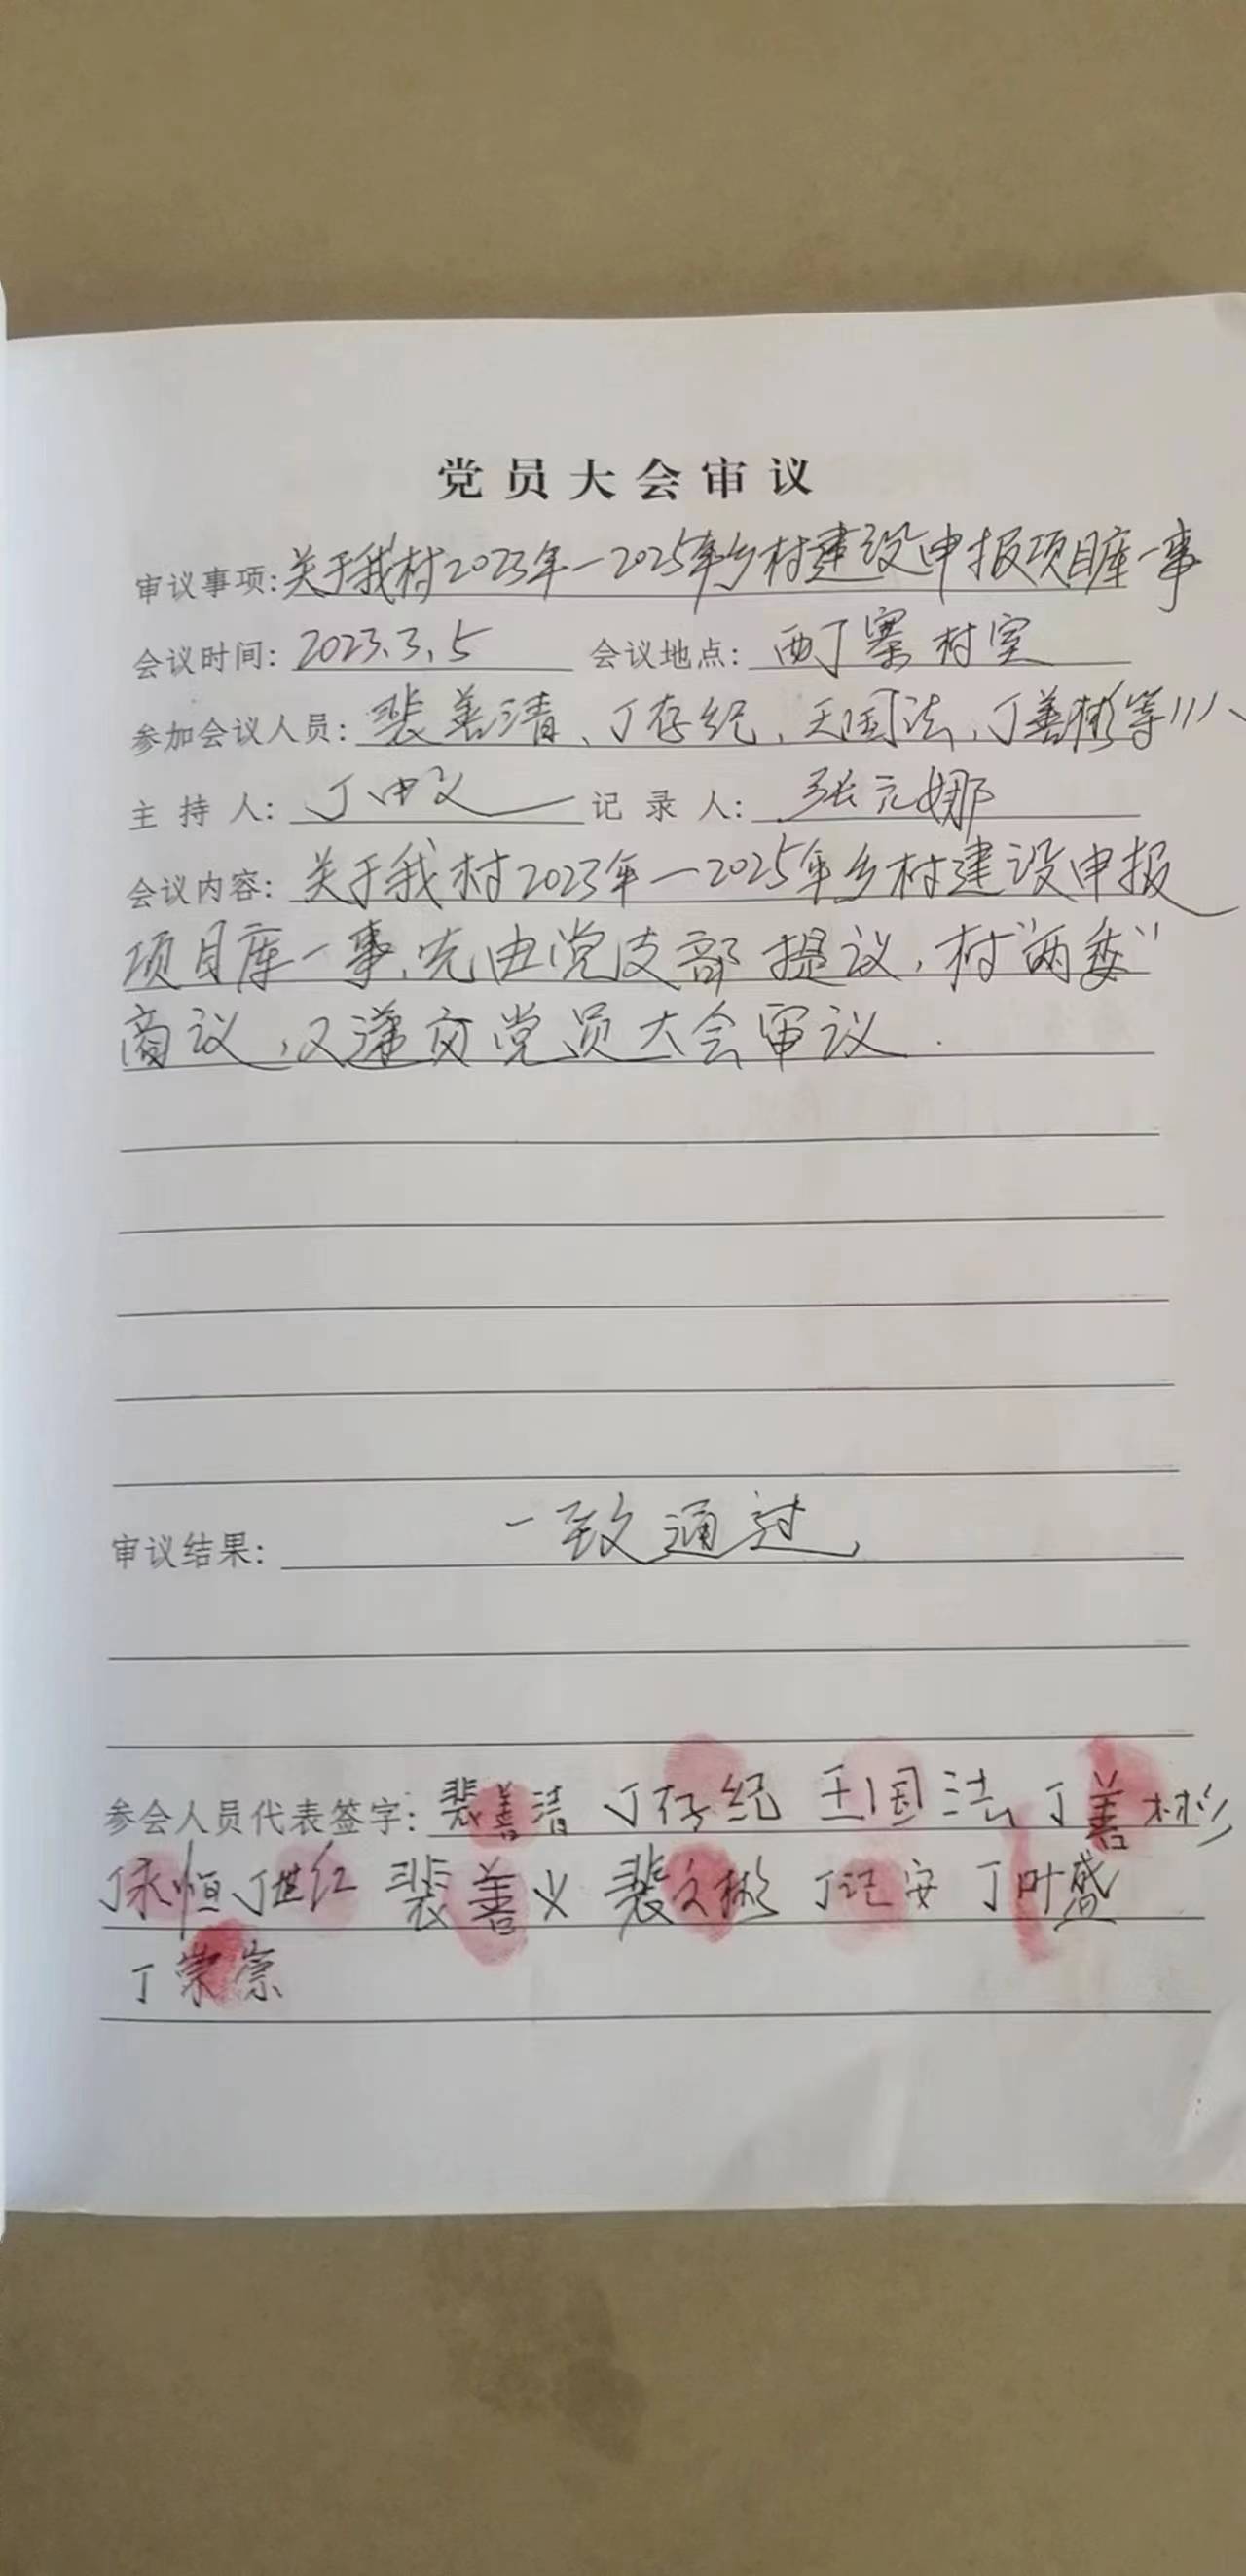 党员大会审议
审议事项:关于我村2023年一2025年乡村建设申报项目库一事
会议时间:2023.3.5 会议地点:西丁寨村室
参加会议人员:裴善清、丁存纪、王国法、丁善彬等11人
主持人:丁中文 记录人:张元娜
会议内容:关于我村2023年一2025年乡村建设申报
项目库一事,先由党支部提议,村"两委"
商议,又递交党员大会审议.
审议结果:一致通过,
参会人员代表签字:裴善清 丁存纪 王国法 丁善彬
丁永恒 丁世红 裴善义 裴文彬 丁记安 丁叶盛
丁荣崇